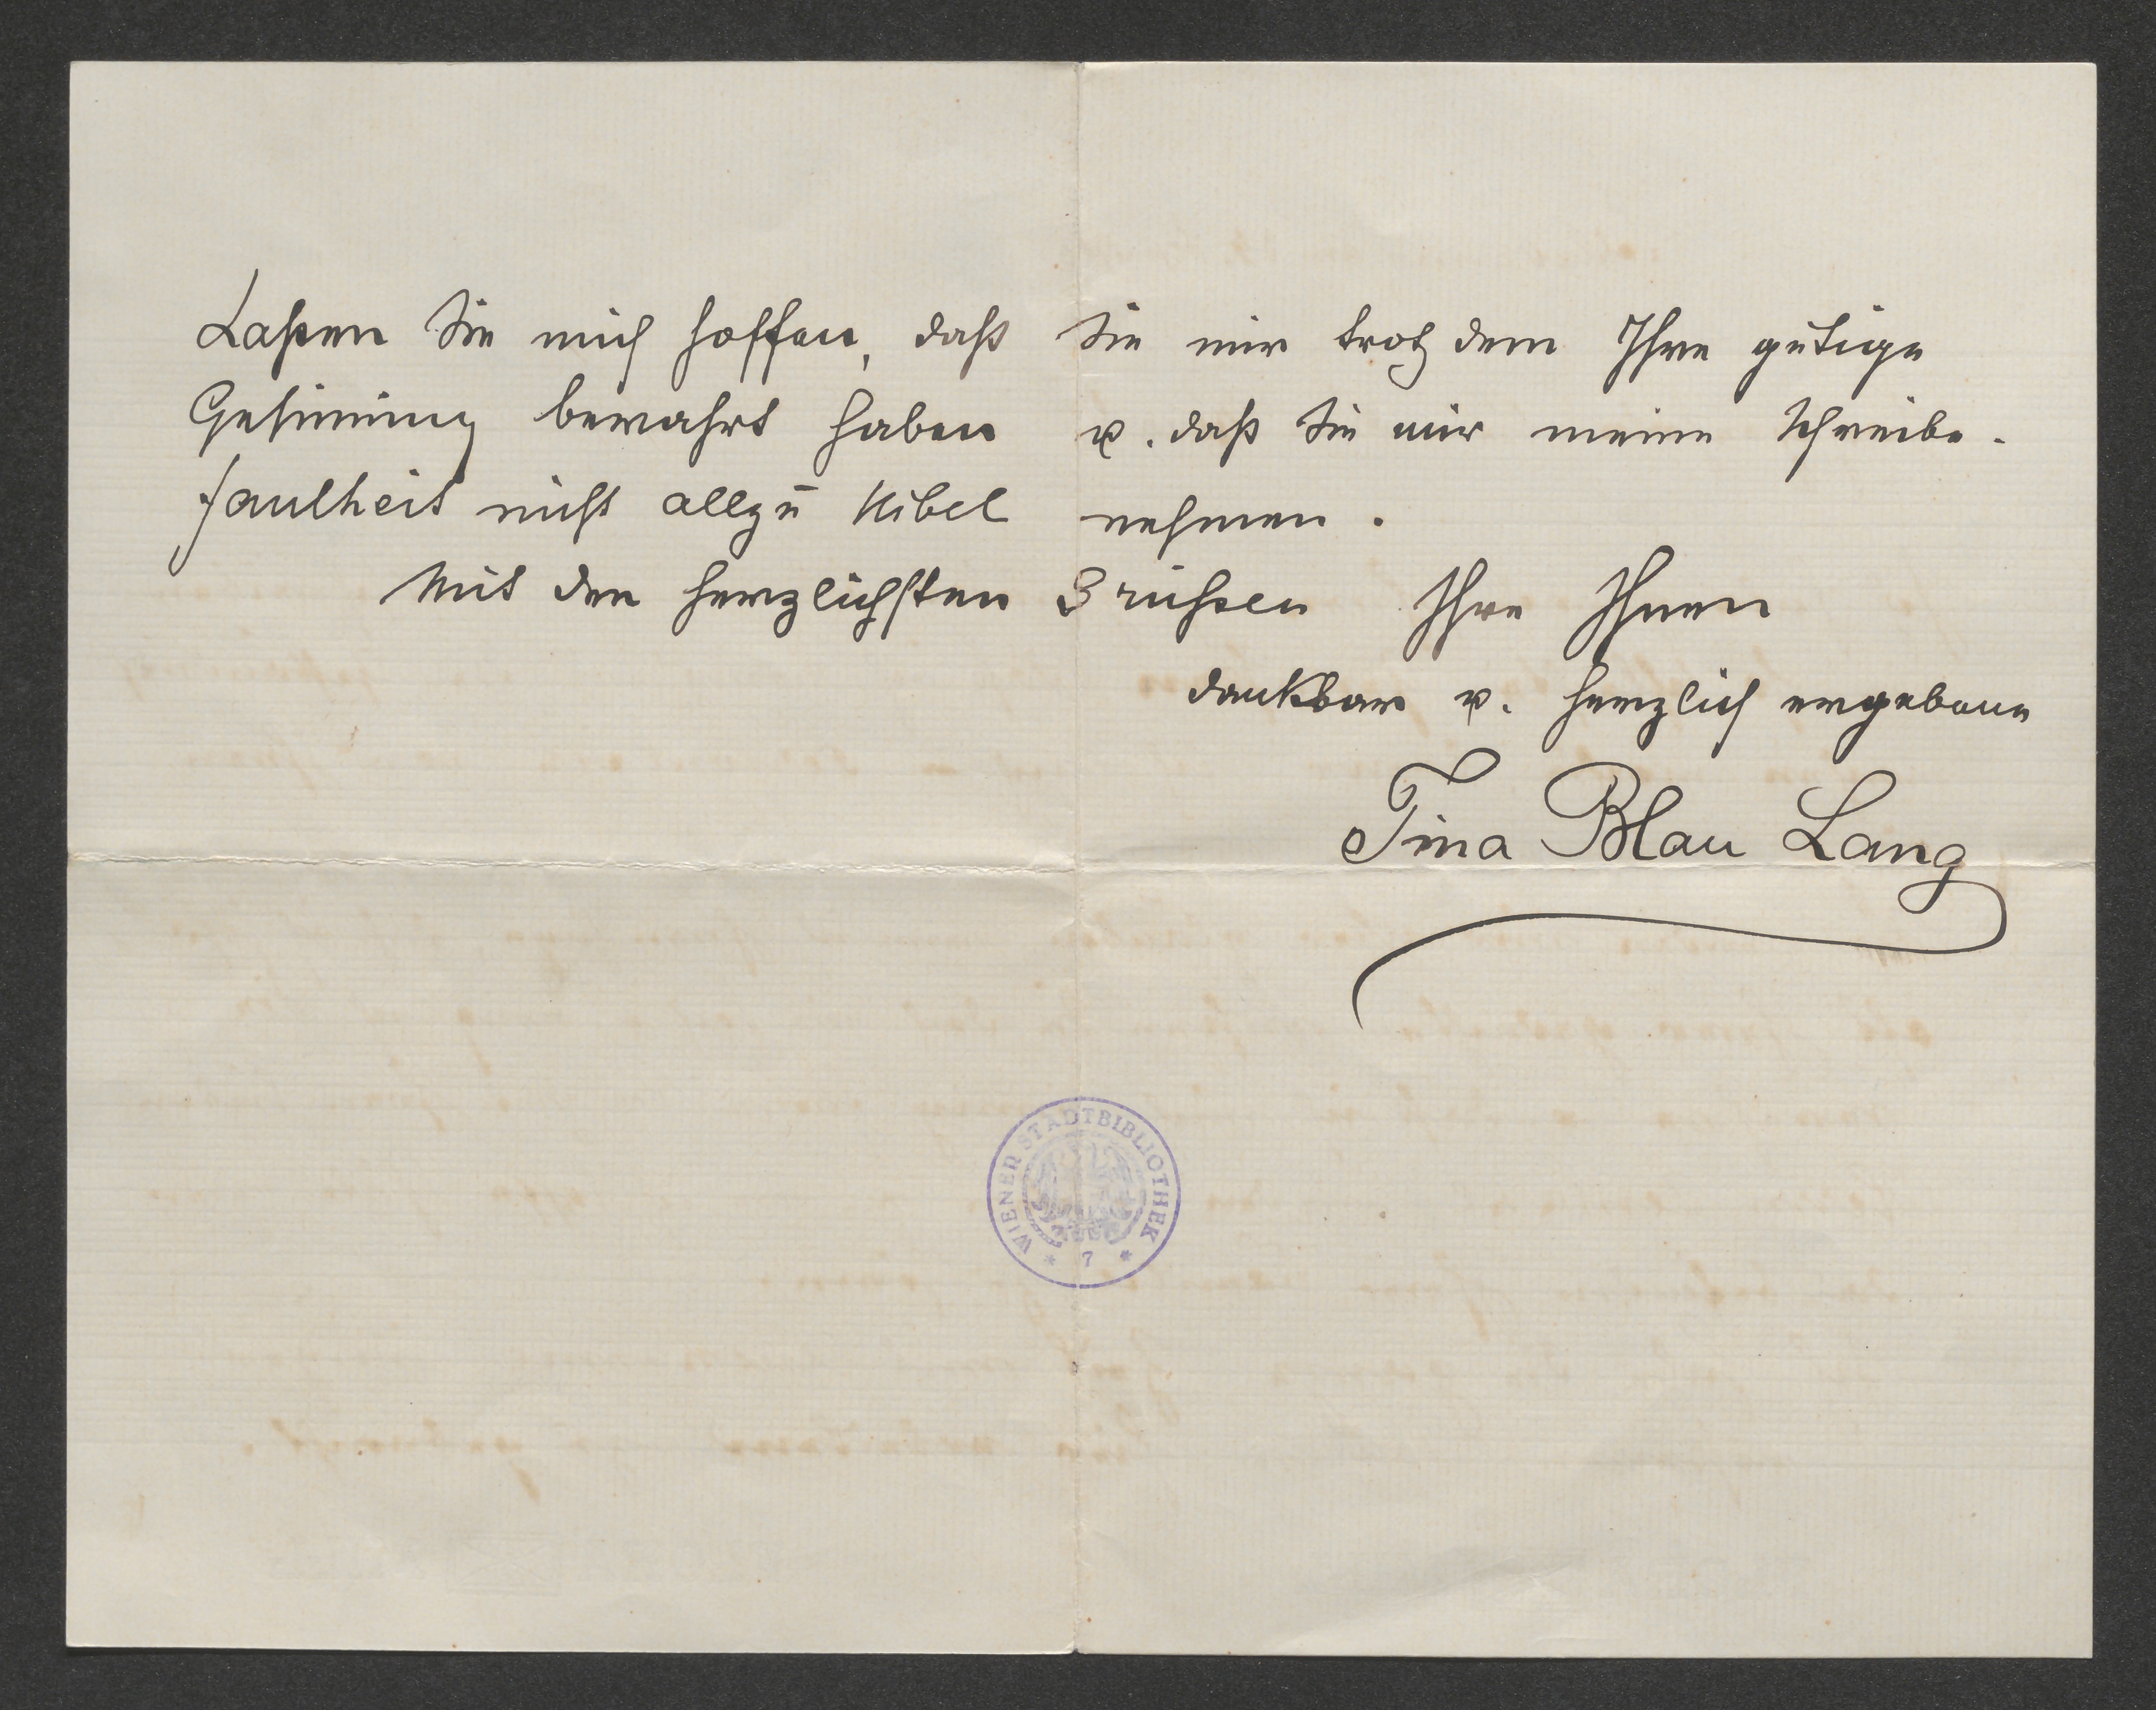 Laßen Sie mich hoffen, daß Sie mir trotz dem Ihre gütige
Gesinnung bewahrt haben u. daß Sie mir meine Schreibe-
faulheit nicht allzu übel nehmen.
Mit den herzlichsten Grüßen Ihre Ihnen
dankbar u. herzlich ergebene
Tina Blau Lang
WIENER STADTBIBLIOTHEK
* 7 *